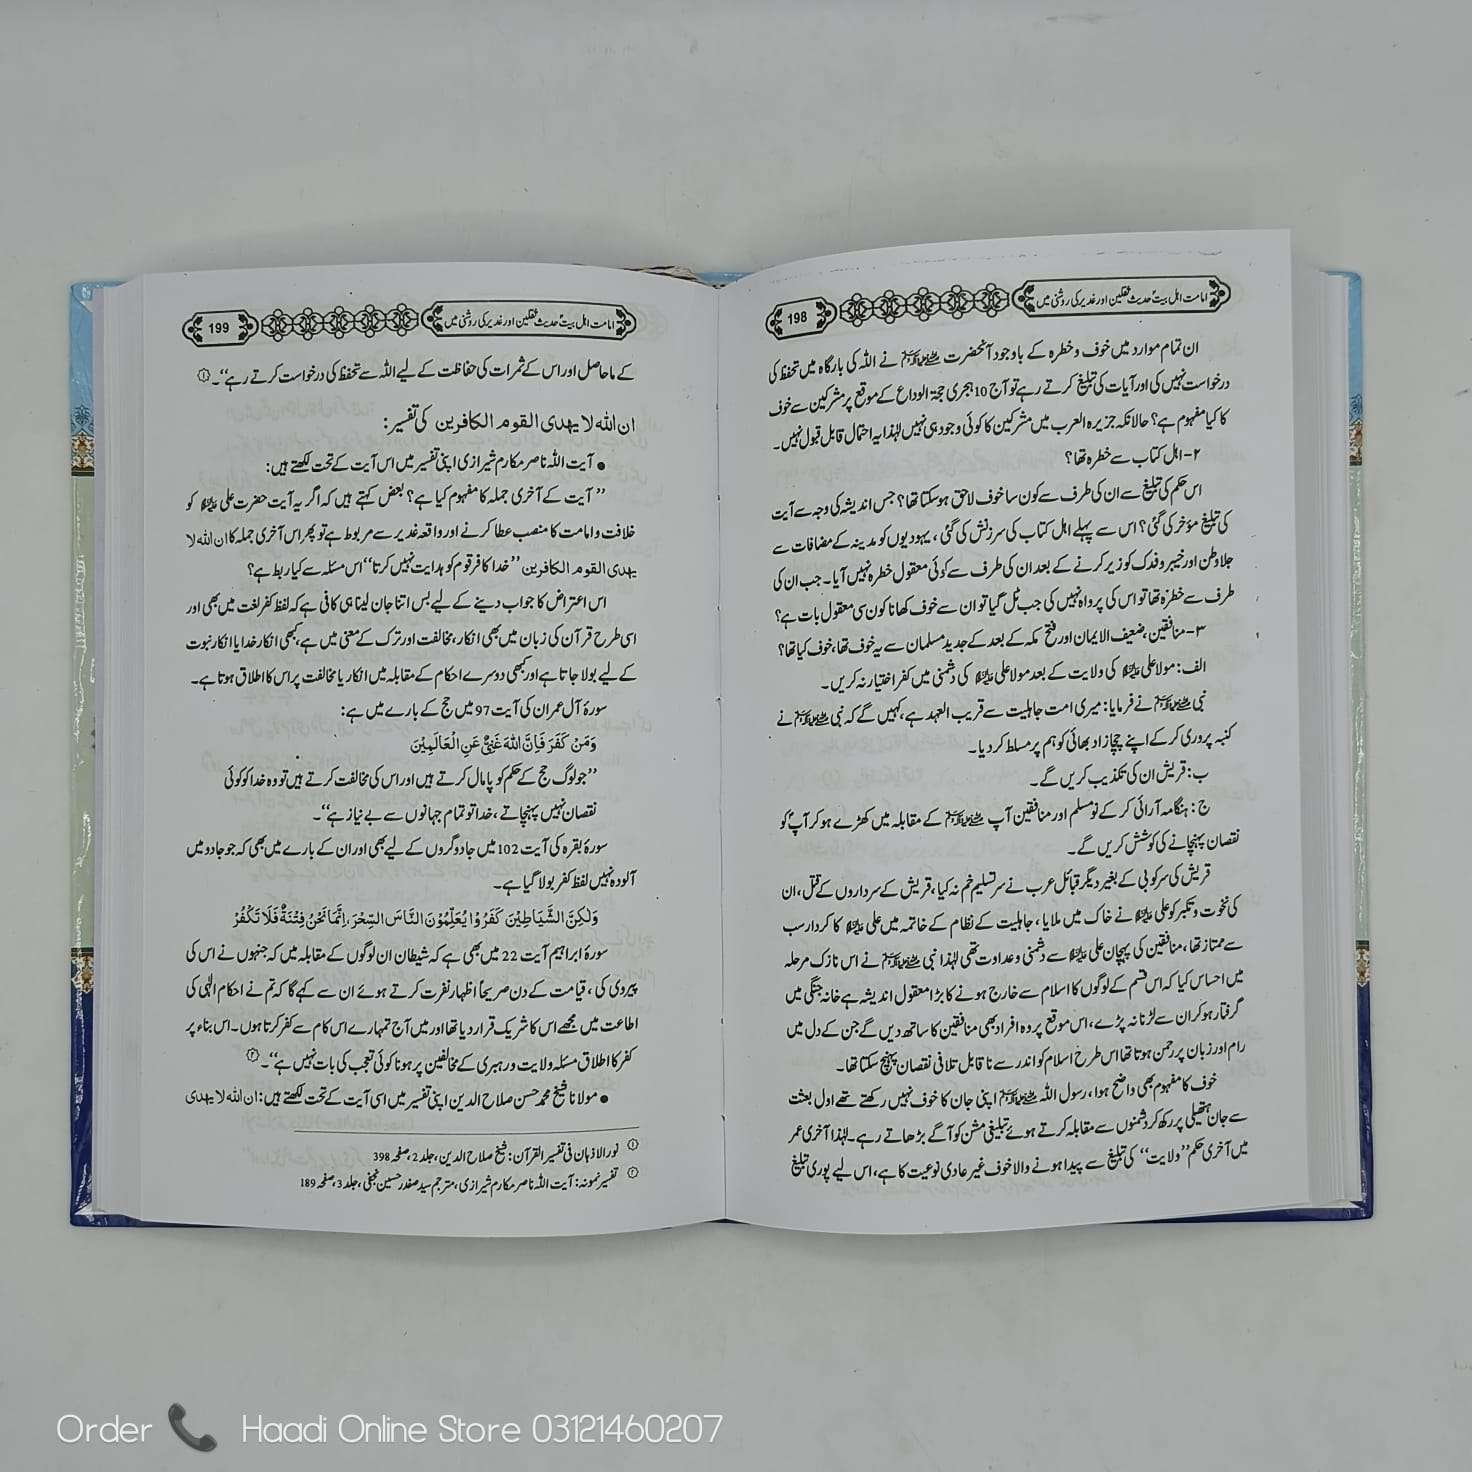 امامت اہل بیتؑ حدیث ثقلین اور غدیر کی روشنی میں
198
ان تمام موارد میں خوف و خطرہ کے باوجود آنحضرت ﷺ نے اللہ کی بارگاہ میں تحفظ کی
درخواست نہیں کی اور آیات کی تبلیغ کرتے رہے تو آج 10 ہجری حجۃ الوداع کے موقع پر مشرکین سے خوف
کا کیا مفہوم ہے؟ حالانکہ جزیرہ العرب میں مشرکین کا کوئی وجود ہی نہیں لہٰذا یہ احتمال قابل قبول نہیں۔
۲- اہل کتاب سے خطرہ تھا؟
اس حکم کی تبلیغ سے ان کی طرف سے کون سا خوف لاحق ہو سکتا تھا؟ جس اندیشہ کی وجہ سے آیت
کی تبلیغ مؤخر کی گئی؟ اس سے پہلے اہل کتاب کی سرزنش کی گئی، یہودیوں کو مدینہ کے مضافات سے
جلا وطن اور خیبر و فدک کو زیر کرنے کے بعد ان کی طرف سے کوئی معقول خطرہ نہیں آیا۔ جب ان کی
طرف سے خطرہ تھا تو اس کی پرواہ نہیں کی جب ٹل گیا تو ان سے خوف کھانا کون سی معقول بات ہے؟
۳- منافقین، ضعیف الایمان اور فتح مکہ کے بعد کے جدید مسلمان سے یہ خوف تھا، خوف کیا تھا؟
الف: مولا علی علیہ السلام کی ولایت کے بعد مولا علی علیہ السلام کی دشمنی میں کفر اختیار نہ کریں۔
نبی ﷺ نے فرمایا: میری امت جاہلیت سے قریب العہد ہے، کہیں گے کہ نبی ﷺ نے
کنبہ پروری کر کے اپنے چچا زاد بھائی کو ہم پر مسلط کر دیا۔
ب: قریش ان کی تکذیب کریں گے۔
ج: ہنگامہ آرائی کر کے نو مسلم اور منافقین آپ ﷺ کے مقابلہ میں کھڑے ہو کر آپؐ کو
نقصان پہنچانے کی کوشش کریں گے۔
قریش کی سرکوبی کے بغیر دیگر قبائل عرب نے سر تسلیم خم نہ کیا، قریش کے سرداروں کے قتل، ان
کی نخوت و تکبر کو علی علیہ السلام نے خاک میں ملایا، جاہلیت کے نظام کے خاتمہ میں علی علیہ السلام کا کردار سب
سے ممتاز تھا، منافقین کی پہچان علی علیہ السلام سے دشمنی و عداوت تھی لہٰذا نبی ﷺ نے اس نازک مرحلہ
میں احساس کیا کہ اس قسم کے لوگوں کا اسلام سے خارج ہونے کا بڑا معقول اندیشہ ہے خانہ جنگی میں
گرفتار ہو کر ان سے لڑنا نہ پڑے، اس موقع پر وہ افراد بھی منافقین کا ساتھ دیں گے جن کے دل میں
رام اور زبان پر رحمن ہوتا تھا اس طرح اسلام کو اندر سے ناقابل تلافی نقصان پہنچ سکتا تھا۔
خوف کا مفہوم بھی واضح ہوا، رسول اللہ ﷺ اپنی جان کا خوف نہیں رکھتے تھے اول بعثت
سے جان ہتھیلی پر رکھ کر دشمنوں سے مقابلہ کرتے ہوئے تبلیغی مشن کو آگے بڑھاتے رہے۔ لہٰذا آخری عمر
میں آخری حکم ’’ولایت‘‘ کی تبلیغ سے پیدا ہونے والا خوف غیر عادی نوعیت کا ہے، اس لیے پوری تبلیغ
امامت اہل بیتؑ حدیث ثقلین اور غدیر کی روشنی میں
199
کے ماحاصل اور اس کے ثمرات کی حفاظت کے لیے اللہ سے تحفظ کی درخواست کرتے رہے‘‘۔ ①
ان اللہ لا یہدی القوم الکافرین کی تفسیر:
● آیت اللہ ناصر مکارم شیرازی اپنی تفسیر میں اس آیت کے تحت لکھتے ہیں:
’’آیت کے آخری جملہ کا مفہوم کیا ہے؟ بعض کہتے ہیں کہ اگر یہ آیت حضرت علی علیہ السلام کو
خلافت و امامت کا منصب عطا کرنے اور واقعہ غدیر سے مربوط ہے تو پھر اس آخری جملہ کا ان اللہ لا
یہدی القوم الکافرین ’’خدا کافر قوم کو ہدایت نہیں کرتا‘‘ اس مسئلہ سے کیا ربط ہے؟
اس اعتراض کا جواب دینے کے لیے بس اتنا جان لینا ہی کافی ہے کہ لفظ کفر لغت میں بھی اور
اسی طرح قرآن کی زبان میں بھی انکار، مخالفت اور ترک کے معنی میں ہے، کبھی انکار خدا یا انکار نبوت
کے لیے بولا جاتا ہے اور کبھی دوسرے احکام کے مقابلہ میں انکار یا مخالفت پر اس کا اطلاق ہوتا ہے۔
سورۂ آل عمران کی آیت 97 میں حج کے بارے میں ہے:
وَمَنْ كَفَرَ فَاِنَّ اللهَ غَنِيٌّ عَنِ الْعَالَمِيْنَ
’’جو لوگ حج کے حکم کو پامال کرتے ہیں اور اس کی مخالفت کرتے ہیں تو وہ خدا کو کوئی
نقصان نہیں پہنچاتے، خدا تو تمام جہانوں سے بے نیاز ہے‘‘۔
سورۂ بقرہ کی آیت 102 میں جادوگروں کے لیے بھی اور ان کے بارے میں بھی کہ جو جادو میں
آلودہ نہیں لفظ کفر بولا گیا ہے۔
وَلٰكِنَّ الشَّيَاطِيْنَ كَفَرُوْا يُعَلِّمُوْنَ النَّاسَ السِّحْرَ، اِنَّمَا نَحْنُ فِتْنَةٌ فَلَا تَكْفُرْ
سورۂ ابراہیم آیت 22 میں بھی ہے کہ شیطان ان لوگوں کے مقابلہ میں کہ جنہوں نے اس کی
پیروی کی، قیامت کے دن صریحاً اظہار نفرت کرتے ہوئے ان سے کہے گا کہ تم نے احکام الٰہی کی
اطاعت میں مجھے اس کا شریک قرار دیا تھا اور میں آج تمہارے اس کام سے کفر کرتا ہوں۔ اس بناء پر
کفر کا اطلاق مسئلہ ولایت و رہبری کے مخالفین پر ہونا کوئی تعجب کی بات نہیں ہے‘‘۔ ②
● مولانا شیخ محمد حسن صلاح الدین اپنی تفسیر میں اسی آیت کے تحت لکھتے ہیں: ان اللہ لا یہدی
① نور الاذہان فی تفسیر القرآن: شیخ صلاح الدین، جلد 2، صفحہ 398
② تفسیر نمونہ: آیت اللہ ناصر مکارم شیرازی، مترجم سید صفدر حسین نجفی، جلد 3، صفحہ 189
Order Haadi Online Store 03121460207